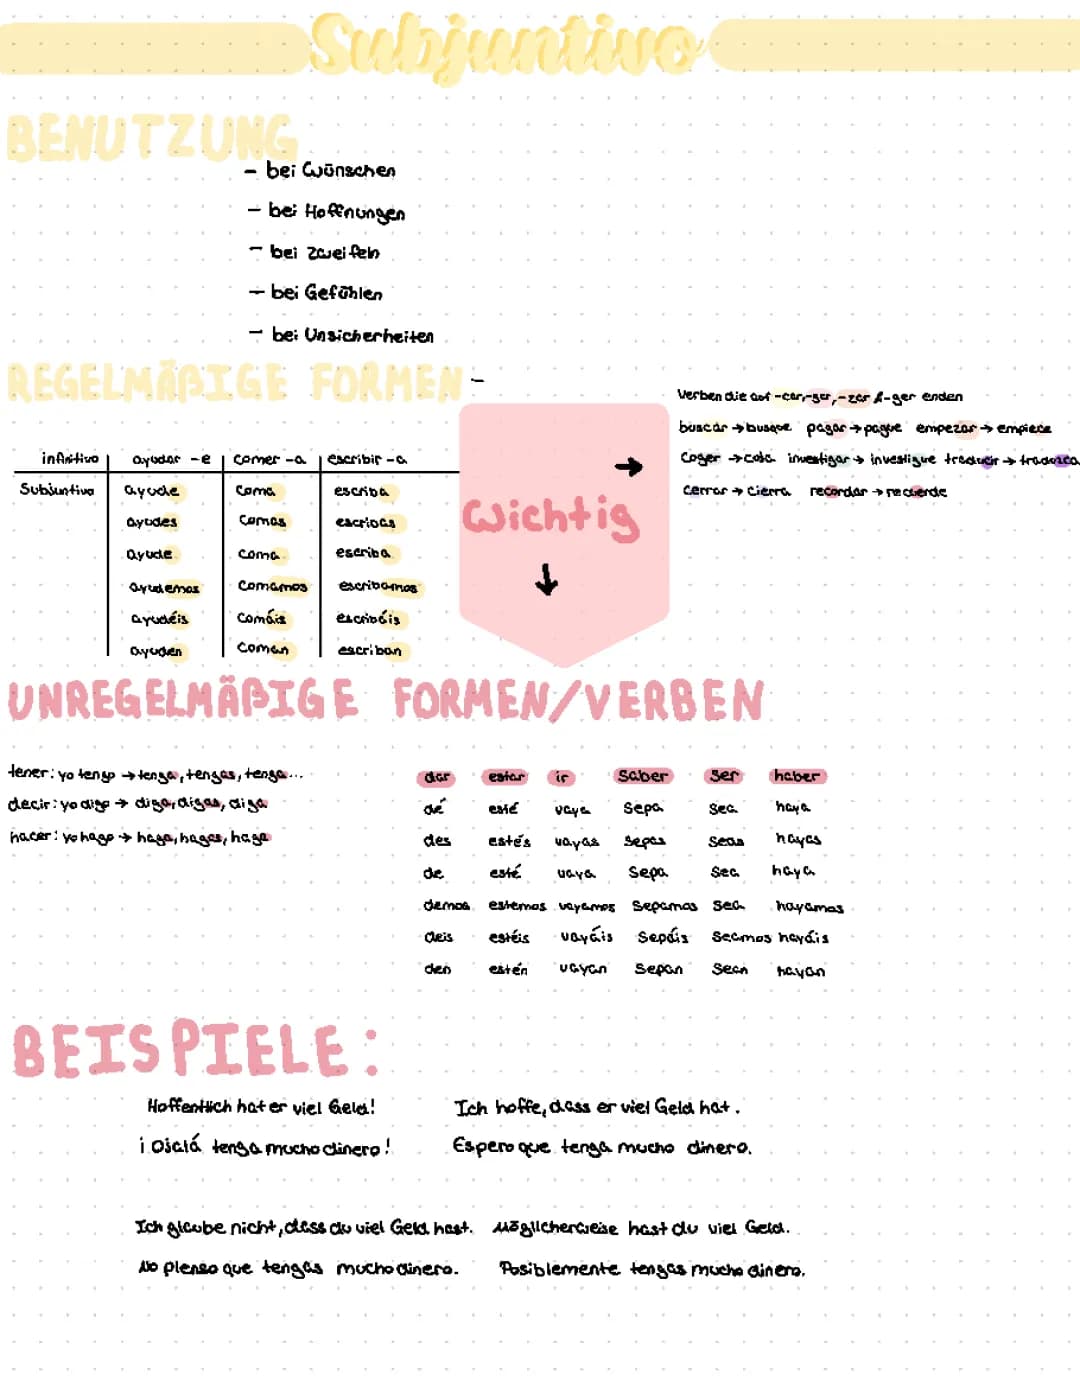 Subjuntivo
BENUTZUNG
- bei Wünschen
- bei Hoffnungen
- bei Zweifeln
- bei Gefühlen
- bei Unsicherheiten
REGELMÄßIGE FORMEN -
infinitivo ayudar -e comer -a escribir -a
Subjuntivo ayude coma escriba
ayudes comas escribas
ayude coma escriba
ayudemos comamos escribamos
ayudéis comáis escribáis
ayuden coman escriban
Wichtig
→
↓
Verben die auf -car, -gar, -zar & -ger enden
buscar → busque pagar → pague empezar → empiece
coger → coja investigar → investigue traducir → traduzca
cerrar → cierra recordar → recuerde
UNREGELMÄßIGE FORMEN/VERBEN
tener: yo tengo → tenga, tengas, tenga...
decir: yo digo → diga, digas, diga
hacer: yo hago → haga, hagas, haga
dar estar ir saber ser haber
dé esté vaya sepa sea haya
des estés vayas sepas seas hayas
de esté vaya sepa sea haya
demos estemos vayamos sepamos sea hayamos
deis estéis vayáis sepáis seamos hayáis
den estén vayan sepan sean hayan
BEISPIELE:
Hoffentlich hat er viel Geld! Ich hoffe, dass er viel Geld hat.
¡Ojalá tenga mucho dinero! Espero que tenga mucho dinero.
Ich glaube nicht, dass du viel Geld hast. Möglicherweise hast du viel Geld.
No pienso que tengas mucho dinero. Posiblemente tengas mucho dinero.